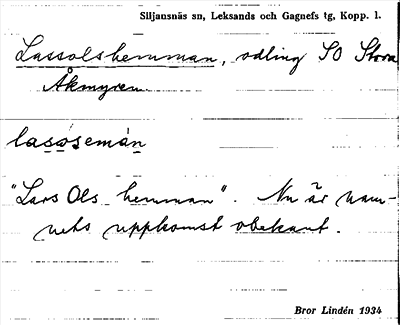 Siljansnäs sn, Leksands och Gagnefs tg, Kopp. l.
Lassolshemman, odling SO Stora
Åkmyren
lasosemán
"Lars Ols hemman". Nu är nam-
nets uppkomst obekant.
Bror Lindén 1934